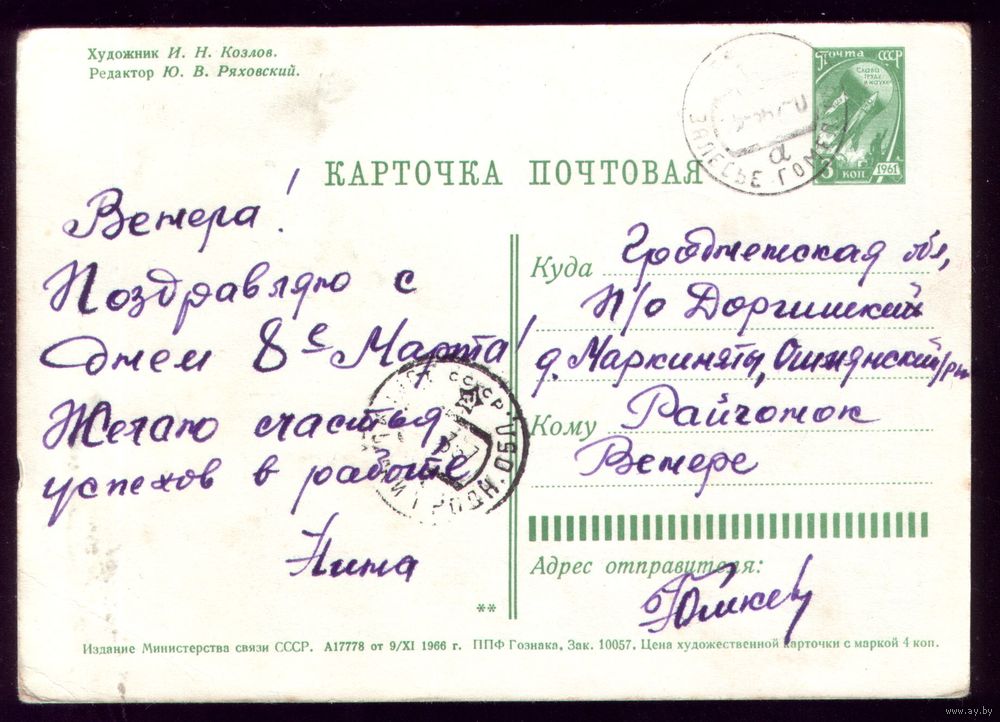 Художник И. Н. Козлов.
Редактор Ю. В. Ряховский.
ПОЧТА СССР
СЛАВА ТРУДУ И НАУКЕ
3 КОП 1961
ЗАЛЕСЬЕ ГОМЕЛ
а
КАРТОЧКА ПОЧТОВАЯ
Венера!
Поздравляю с
Днем 8 с Марта!
Желаю счастья,
успехов в работе.
Нина
**
СССР
ГРОДН. ОБЛ
Куда Гродненская обл,
п/о Доргишский
д. Маркиняты, Ошмянский р-н
Кому Райчонок
Венере
Адрес отправителя:
Издание Министерства связи СССР. А17778 от 9/XI 1966 г. ППФ Гознака, Зак. 10057. Цена художественной карточки с маркой 4 коп.
www.ay.by